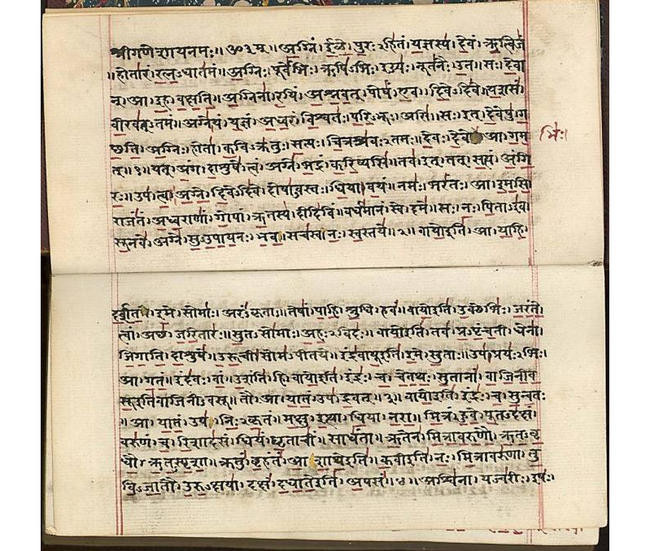 श्रीगणेशायनमः॥ॐ३म्॥अग्निं।ईळे।पुरःऽहितं।यज्ञस्य।देवं।ऋत्विजं
।होतारं।रत्नऽधातमं।अग्निः।पूर्वेभिः।ऋषिऽभिः।ईड्यः।नूतनैः।उत।सः।देवा
न्।आ।इह।वक्षति।अग्निना।रयिं।अश्नवत्।पोषं।एव।दिवेऽदिवे।यशसं
वीरवत्ऽतमं।अग्ने।यं।यज्ञं।अध्वरं।विश्वतः।परिऽभूः।असि।सः।इत्।देवेषु।ग
च्छति।अग्निः।होता।कविऽक्रतुः।सत्यः।चित्रश्रवःऽतमः।देवः।देवे।आ।गम
भिः।
त्॥१॥यत्।अंग।दाशुषे।त्वं।अग्ने।भद्रं।करिष्यसि।तव।इत्।तत्।सत्यं।अंगि
रः।उप।त्वा।अग्ने।दिवेऽदिवे।दोषाऽवस्तः।धिया।वयं।नमः।भरंतः।आ।इमसि
राजंतं।अध्वराणां।गोपां।ऋतस्य।दीदिविं।वर्धमानं।स्वे।दमे।सः।नः।पिताऽइव
सूनवे।अग्ने।सुऽउपायनः।भव।सचस्व।नः।स्वस्तये॥२॥वायोइति।आ।याहि
दर्शत।इमे।सोमाः।अरंऽकृताः।तेषां।पाहि।श्रुधि।हवं।वायोइति।उक्थेभिः।जरंते
त्वां।अच्छ।जरितारः।सुतऽसोमाः।अहःऽविदः।वायोइति।तव।प्रऽपृंचती।धेना
जिगाति।दाशुषे।उरूची।सोमऽपीतये।इंद्रवायूइति।इमे।सुताः।उप।प्रयःऽभिः
आ।गतं।इंदवः।वां।उशंति।हि।वायोइति।इंद्रः।च।चेतथः।सुतानां।वाजिनीव
सूइतिवाजिनीऽवसू।तौ।आ।यातं।उप।द्रवत्॥३॥वायोइति।इंद्रः।च।सुन्वतः
।आ।यातं।उप।निःऽकृतं।मक्षु।इत्था।धिया।नरा।मित्रं।हुवे।पूतऽदक्षं
वरुणं।च।रिशादसं।धियं।घृताचीं।साधंता।ऋतेन।मित्रावरुणौ।ऋतऽवृ
धौ।ऋतऽस्पृशा।क्रतुं।बृहंतं।आशाथेइति।कवीइति।नः।मित्रावरुणा।तु
विऽजातौ।उरुऽक्षया।दक्षं।दधातेइति।अपसं॥४॥अश्विना।यज्वरीः।इषः